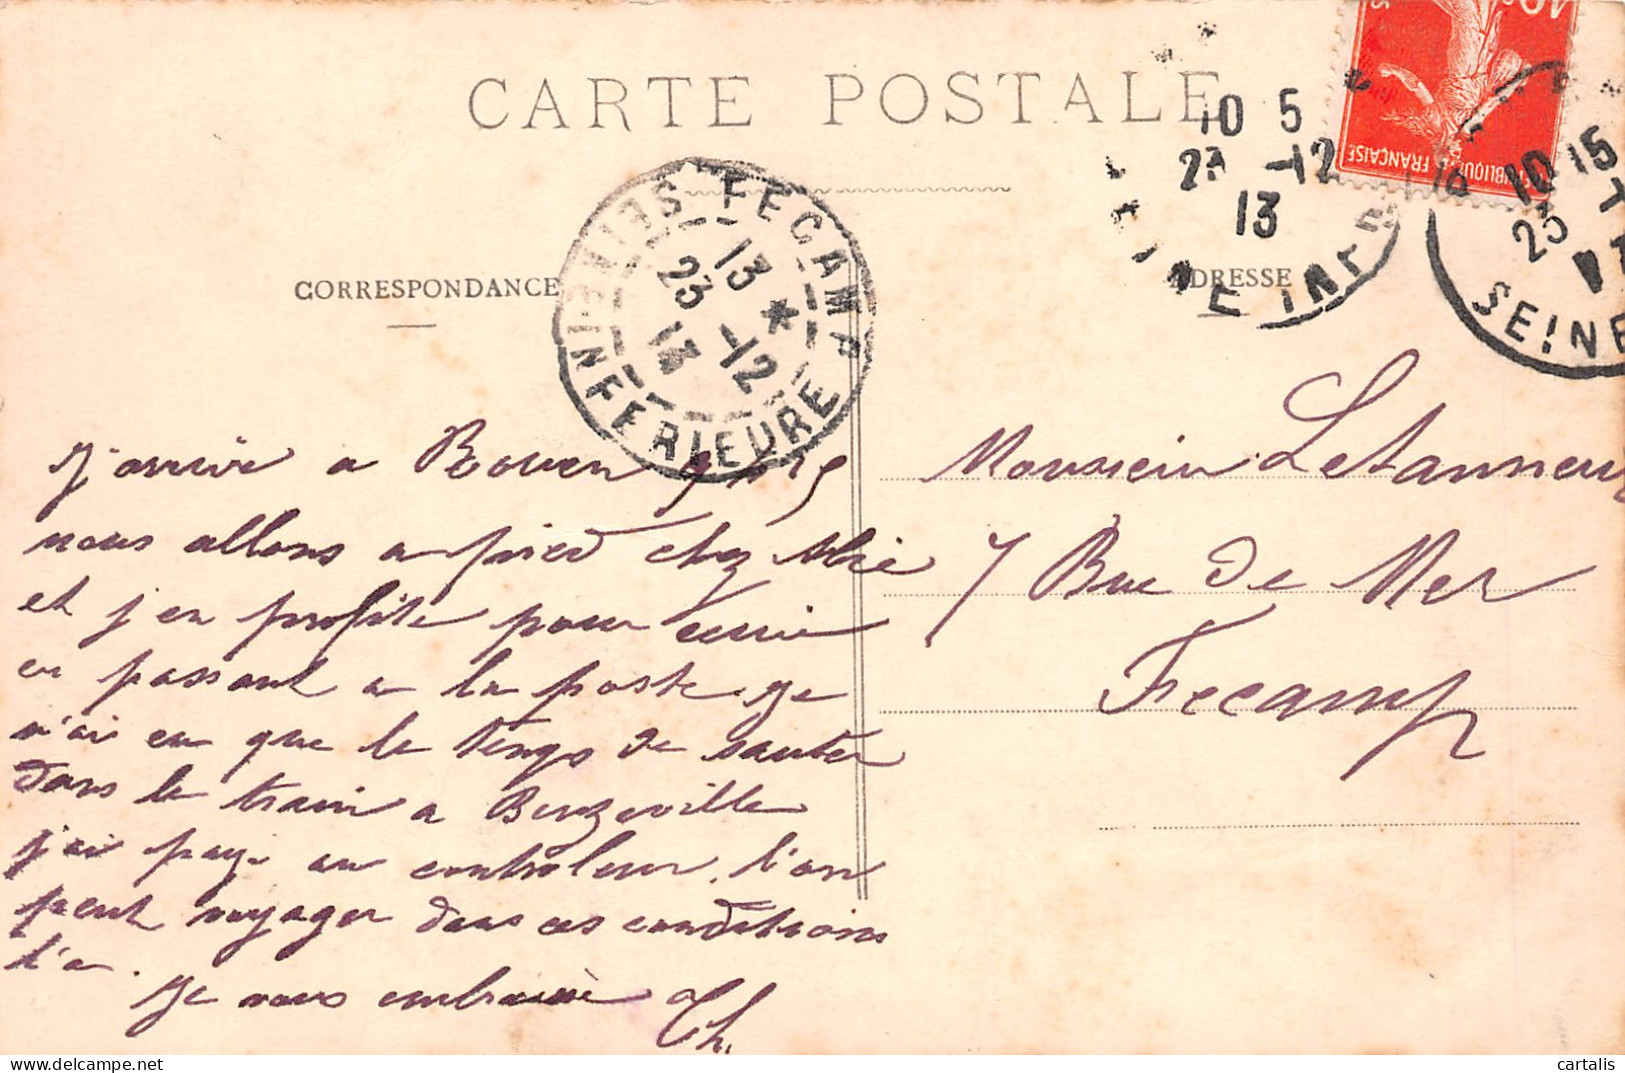 CARTE POSTALE
CORRESPONDANCE
ADRESSE
FECAMP
SEINE-INFERIEURE
13 *
23 -12
13
10 5
23 -12
13
EINE INFE
10 15
23
SEINE
10c
RÉPUBLIQUE FRANÇAISE
J'arrive a Rouen 9h15
nous allons a pied chez Mie
et j'en profite pour écrire
en passant a la poste. Je
n'ai eu que le temps de sauter
dans le train a Beuzeville
j'ai payé au controleur. l'on
peut voyager dans ces conditions
l'a.
Je vous embrasse Th.
Monsieur Letanneur
7 Rue de Mer
Fecamp
cartalis